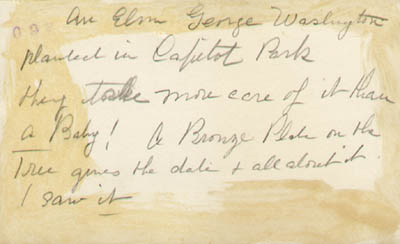 An Elm George Washington
planted in Capitol Park
they take more care of it than
a Baby! A Bronze Plate on the
Tree gives the date + all about it.
I saw it